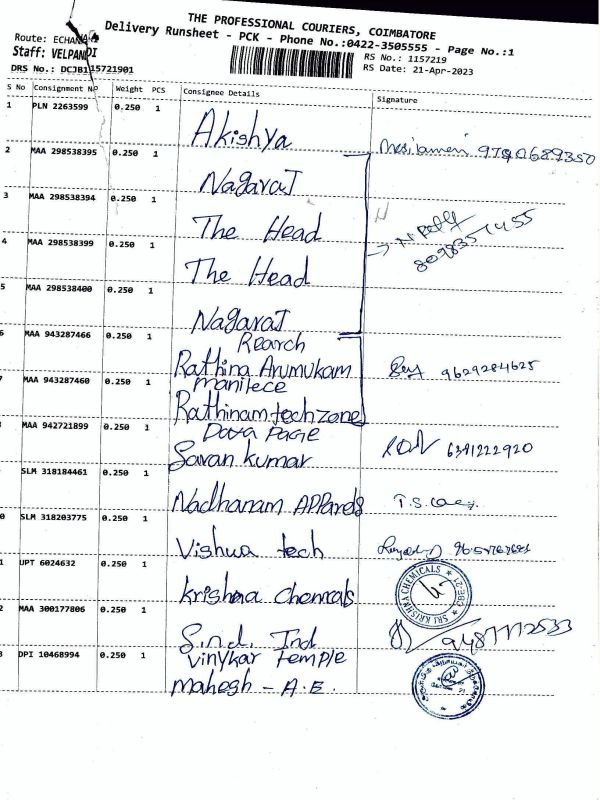 THE PROFESSIONAL COURIERS, COIMBATORE
Delivery Runsheet - PCK - Phone No.:0422-3505555 - Page No.:1
Route: ECHANA
Staff: VELPANDI
RS No.: 1157219
DRS No.: DCJB115721901
RS Date: 21-Apr-2023
S No Consignment No Weight PCS Consignee Details Signature
1 PLN 2263599 0.250 1 Akishya 9790689350
2 MAA 298538395 0.250 1 NagaraJ
3 MAA 298538394 0.250 1 The Head
4 MAA 298538399 0.250 1 The Head
5 MAA 298538400 0.250 1 NagaraJ
6 MAA 943287466 0.250 1 Rearch
Rathina Arumukam 9629284625
7 MAA 943287460 0.250 1 manitece
Rathinam techzone
MAA 942721899 0.250 1 Dova Page
Savan kumar 6391222920
SLM 318184461 0.250 1 Nadhanam APParels T.S.
0 SLM 318203775 0.250 1 Vishwa tech
1 UPT 6024632 0.250 1 Krishna Chemcals
SRI KRISHNA CHEMICALS
2 MAA 300177806 0.250 1 S.n.d. Ind
3 DPI 10468994 0.250 1 vinykar temple
mahesh - A.E.